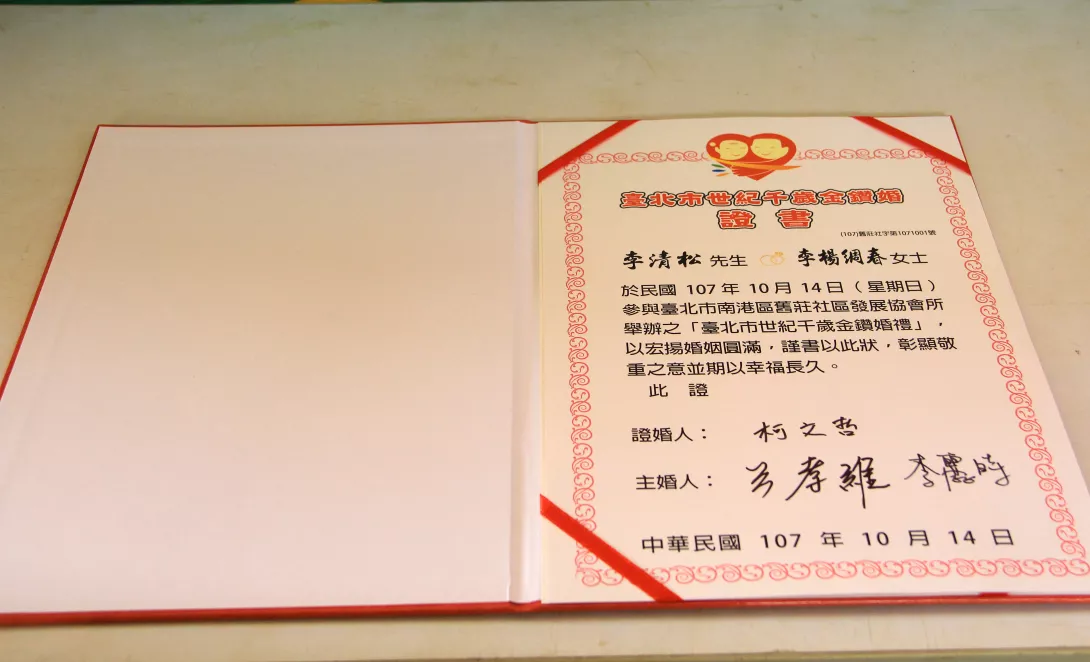 臺北市世紀千歲金鑽婚
證書
(107)舊莊社字第1071001號
李清松 先生 李楊綢春 女士
於民國 107 年 10 月 14 日（星期日）
參與臺北市南港區舊莊社區發展協會所
舉辦之「臺北市世紀千歲金鑽婚禮」，
以宏揚婚姻圓滿，謹書以此狀，彰顯敬
重之意並期以幸福長久。
此 證
證婚人： 柯文哲
主婚人：
中華民國 107 年 10 月 14 日